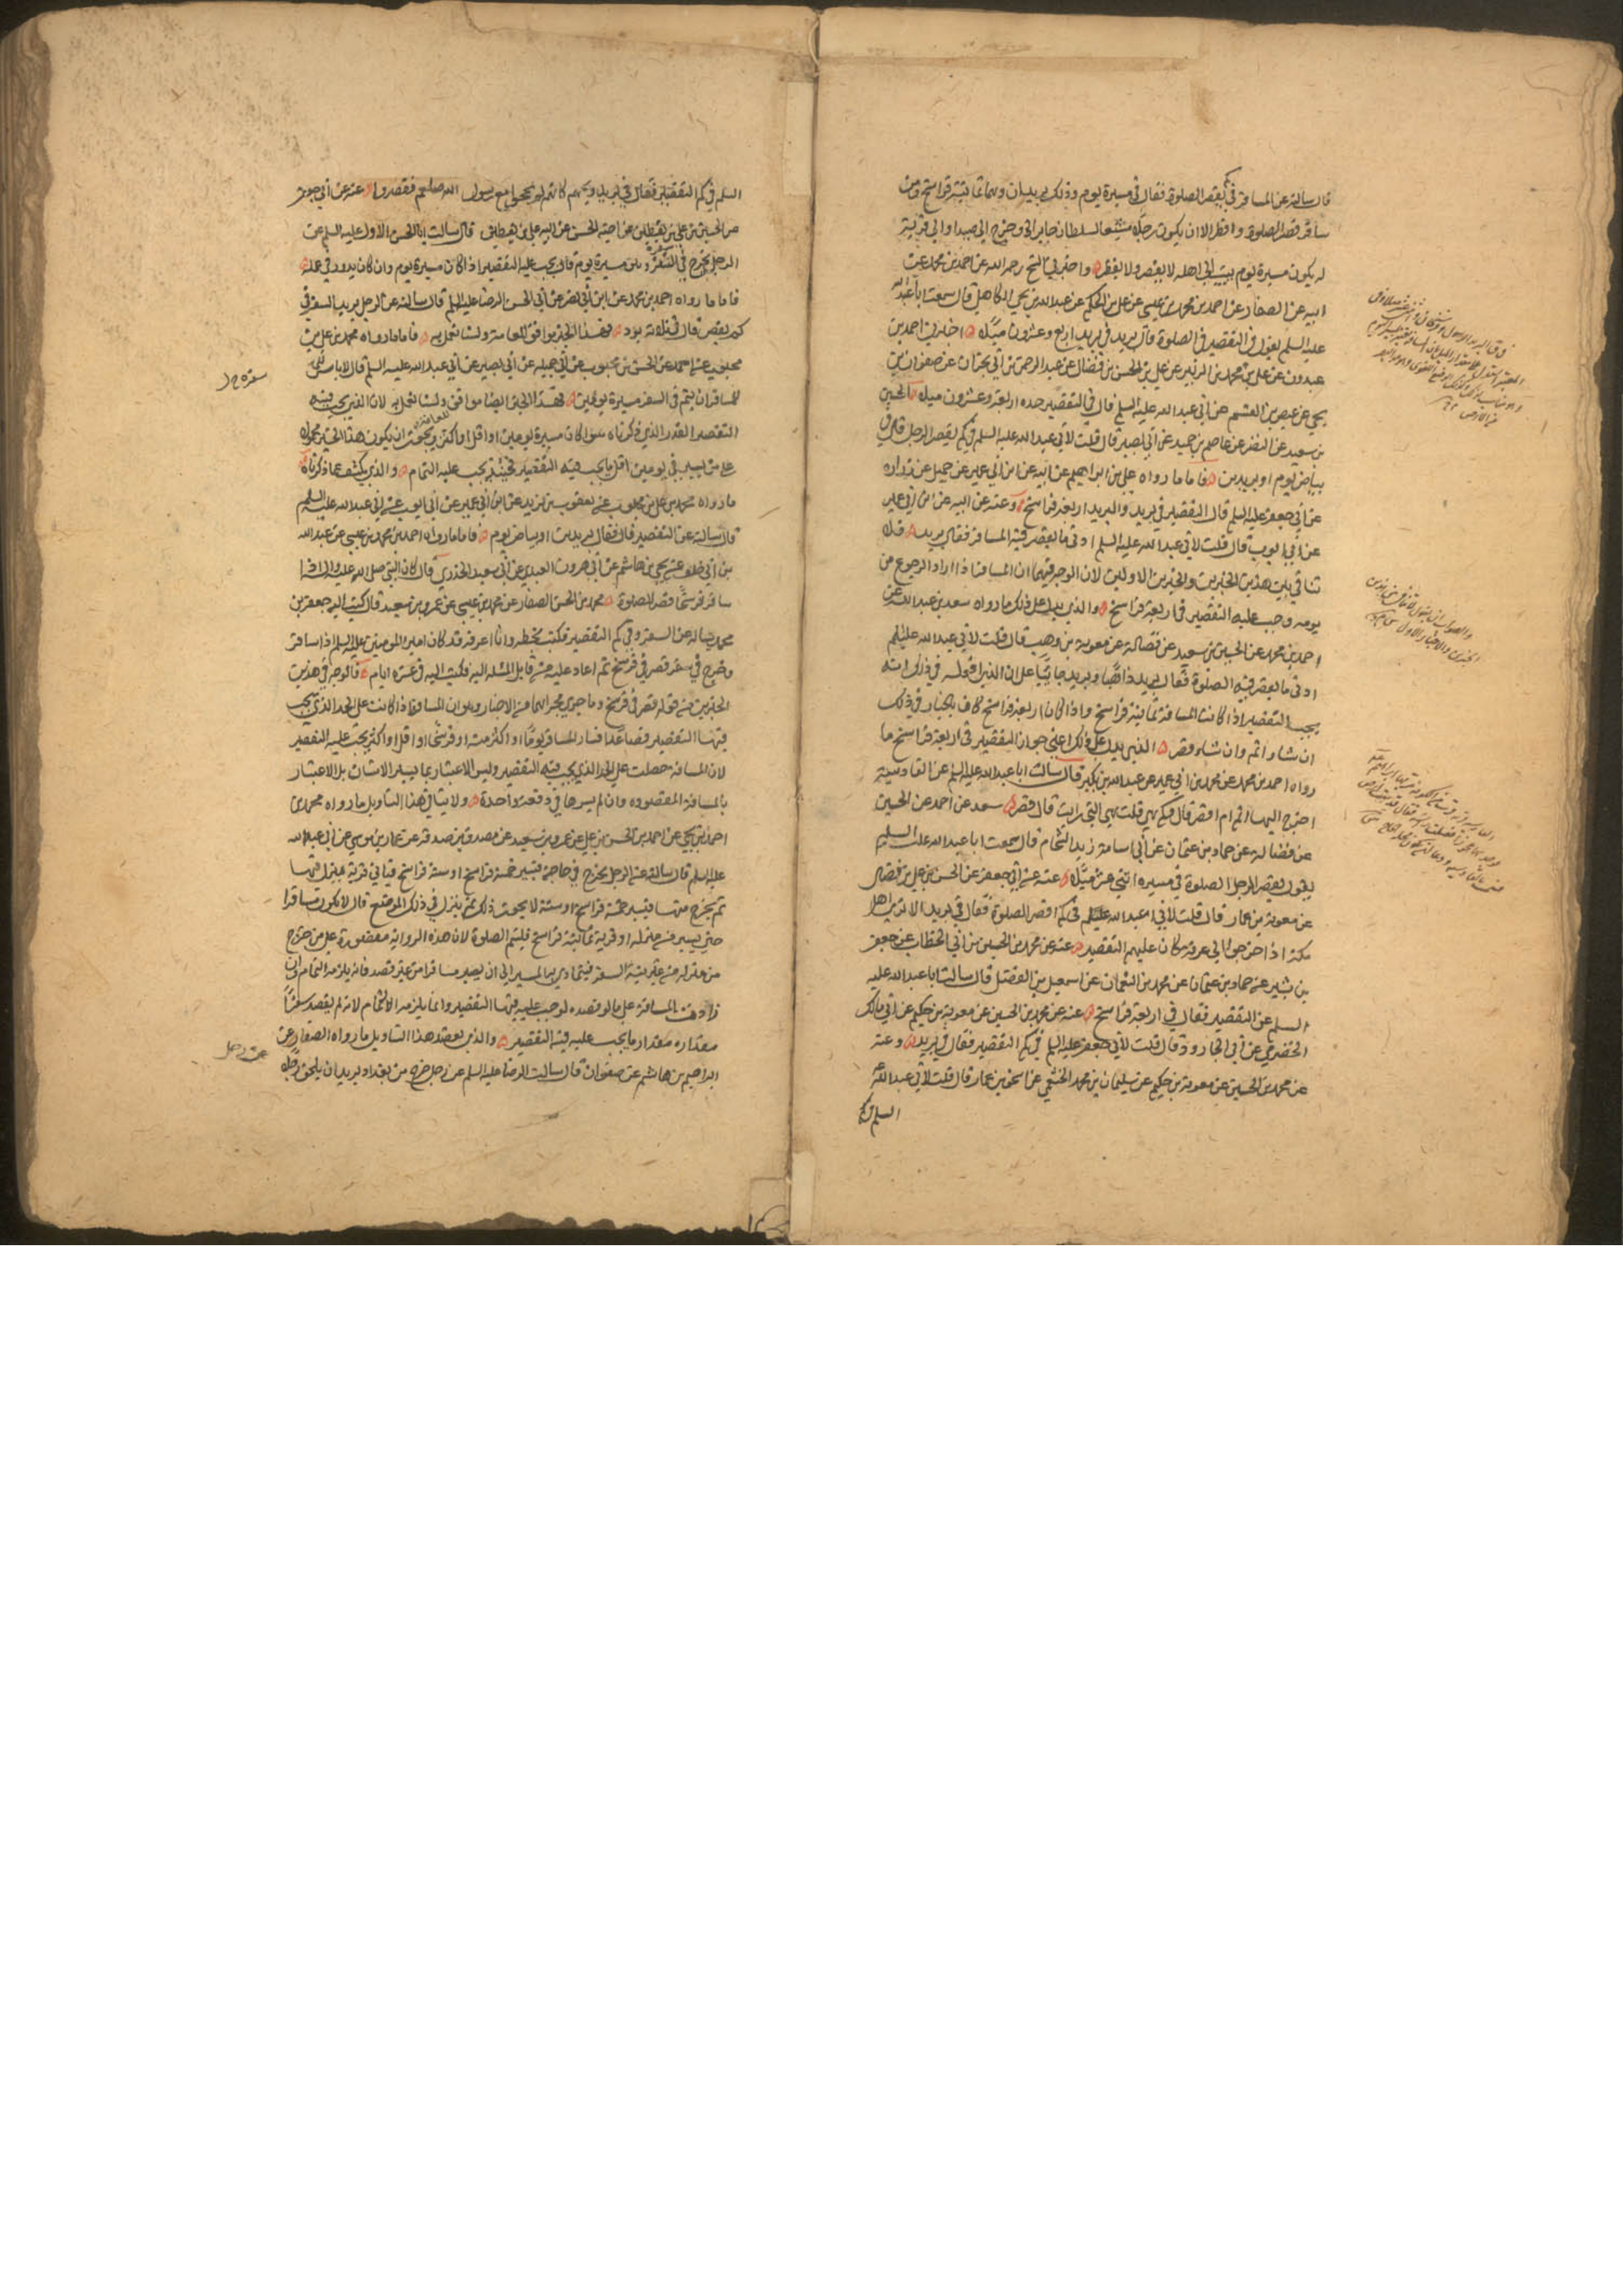 قال سالته عن المسافر في كم يقصر الصلوة فقال في مسيرة يوم وذلك بريدان وهما ثمانية فراسخ ومن
سافر قصر الصلوة وافطر الا ان يكون رجلا مشيعا لسلطان جاير او خرج الى صيد او الى قرية
له يكون مسيرة يوم يبيت الى اهله لا يقصر ولا يفطر واخبرني الشيخ رحمه الله عن احمد بن محمد عن
ابيه عن الصفار عن احمد بن محمد بن عيسى عن علي بن الحكم عن عبد الله بن يحيى الكاهلي قال سمعت ابا عبد الله
عليه السلم يقول في التقصير في الصلوة قال بريد في بريد اربع وعشرون ميلا اخبرني احمد بن
عبدون عن علي بن محمد بن الزبير عن علي بن الحسن بن فضال عن عبد الرحمن بن ابي نجران عن صفوان بن
يحيى عن عيص بن القسم عن ابي عبد الله عليه السلم قال في التقصير حده اربعة وعشرون ميلا الحسين
بن سعيد عن النضر عن عاصم بن حميد عن ابي بصير قال قلت لابي عبد الله عليه السلم في كم يقصر الرجل قال في
بياض يوم او بريدين فاما ما رواه علي بن ابراهيم عن ابيه عن ابن ابي عمير عن جميل عن زراره
عن ابي جعفر عليه السلم قال التقصير في بريد والبريد اربعة فراسخ وعنه عن ابيه عن ابن ابي عمير
عن ابي ايوب قال قلت لابي عبد الله عليه السلم ادنى ما يقصر فيه المسافر فقال بريد فلا
تنافي بين هذين الخبرين والخبرين الاولين لان الوجه فيهما ان المسافر اذا اراد الرجوع من
يومه وجب عليه التقصير في اربعة فراسخ والذي يدل على ذلك ما رواه سعد بن عبد الله عن
احمد بن محمد عن الحسين بن سعيد عن فضالة عن معوية بن وهب قال قلت لابي عبد الله عليه السلم
ادنى ما يقصر فيه الصلوة فقال بريد ذاهبا وبريد جائيا على ان الذي نقوله في ذلك انه
يجب التقصير اذا كانت المسافة ثمانية فراسخ واذا كان اربعة فراسخ كان بالخيار في ذلك
ان شاء اتم وان شاء قصر الذي يدل على ذلك اعني جواز التقصير في اربعة فراسخ ما
رواه احمد بن محمد عن محمد بن ابي عمير عن عبد الله بن بكير قال سالت ابا عبد الله عليه السلم عن القادسية
اخرج اليها اتم ام اقصر قال وكم هي قلت هي التي رايت قال قصر سعد عن احمد عن الحسين
عن فضالة عن حماد بن عثمان عن ابي اسامة زيد الشحام قال سمعت ابا عبد الله عليه السلم
يقول يقصر الرجل الصلوة في مسيره اثني عشر ميلا عنه عن ابي جعفر عن الحسن بن علي بن فضال
عن معوية بن عمار قال قلت لابي عبد الله عليه السلم في كم اقصر الصلوة فقال في بريد الا ترى اهل
مكة اذا خرجوا الى عرفة كان عليهم التقصير عنه عن محمد بن الحسين بن ابي الخطاب عن جعفر
بن بشير عن حماد بن عثمان عن محمد بن النعمان عن اسمعيل بن الفضل قال سالت ابا عبد الله عليه
السلم عن التقصير فقال في اربعة فراسخ عنه عن محمد بن الحسين عن معوية بن حكيم عن ابي مالك
الحضرمي عن ابي الجارود قال قلت لابي جعفر عليه السلم في كم التقصير فقال في بريد وعنه
عن محمد بن الحسين عن معوية بن حكيم عن سليمان بن محمد الخثعمي عن اسحق بن عمار قال قلت لابي عبد الله عليه
السلم في كم
السلم في كم التقصير فقال في بريد ويحهم كانهم لم يحجوا مع رسول الله صلعم فقصروا عنه عن ابي جعفر
عن الحسين بن علي بن يقطين عن اخيه الحسن عن ابيه علي بن يقطين قال سالت ابا الحسن الاول عليه السلم عن
الرجل يخرج في السفر وهو مسيرة يوم قال يجب عليه التقصير اذا كان مسيرة يوم وان كان يدور في عمله
فاما ما رواه احمد بن محمد عن ابن ابي نصر عن ابي الحسن الرضا عليه السلم قال سالته عن الرجل يريد السفر في
كم يقصر قال في ثلثة برد فهذا الخبر يوافق العامة ولسنا نعمل به فاما ما رواه محمد بن علي بن
محبوب عن احمد عن الحسن بن محبوب عن ابي جميلة عن ابي بصير عن ابي عبد الله عليه السلم قال لا باس
للمسافر ان يتم في السفر مسيرة يومين فهذا الخبر ايضا موافق ولسنا نعمل به لان الذي يجب فيه
للعامة
التقصير القدر الذي ذكرناه سواء كان مسيرة يومين او اقل او اكثر ويحتمل ان يكون هذا الخبر محمولا
على من يسير في يومين اقل ما يجب فيه التقصير فحينئذ يجب عليه التمام والذي يكشف عما ذكرناه
ما رواه محمد بن علي بن محبوب عن يعقوب بن يزيد عن ابن ابي عمير عن ابي ايوب عن ابي عبد الله عليه السلم
قال سالته عن التقصير قال فقال في بريدين او بياض يوم فاما ما رواه احمد بن محمد بن عيسى عن عبد الله
بن ابي خلف عن يحيى بن هاشم عن ابي هرون العبدي عن ابي سعيد الخدري قال كان النبي صلى الله عليه واله اذا
سافر فرسخا قصر الصلوة محمد بن الحسن الصفار عن محمد بن عيسى عن عمرو بن سعيد قال كتب اليه جعفر بن
محمد يساله عن السفر وفي كم التقصير فكتب بخطه وانا اعرفه قد كان امير المومنين عليه السلم اذا سافر
وخرج في سفر قصر في فرسخ ثم اعاد عليه من قابل المسئلة اليه فكتب اليه في عشرة ايام فالوجه في هذين
الخبرين من قوله قصر في فرسخ وما جرى مجراهما من الاخبار هو ان المسافر اذا كانت على الحد الذي يجب
فيها التقصير فصاعدا فسار المسافر يوما او اكثر منه او فرسخا او اقل او اكثر يجب عليه التقصير
لان المسافة حصلت على الحد الذي يجب فيه التقصير وليس الاعتبار بما يسير الانسان بل الاعتبار
بالمسافة المقصوده وان لم يسرها في دفعة واحدة ولا ينافي هذا التاويل ما رواه محمد بن
احمد بن يحيى عن احمد بن الحسن بن علي عن عمرو بن سعيد عن مصدق بن صدقه عن عمار بن موسى عن ابي عبد الله
عليه السلم قال سالته عن الرجل يخرج في حاجة فيسير خمسة فراسخ او ستة فراسخ فياتي قرية فينزل فيها
ثم يخرج منها فيسير خمسة فراسخ او ستة لا يجوز ذلك ثم ينزل في ذلك الموضع قال لا يكون مسافرا
حتى يسير من منزله او قرية ثمانية فراسخ فليتم الصلوة لان هذه الرواية مقصورة على من خرج
من منزله من غير نية السفر فيتمادى به المسير الى ان يصير مسافرا من غير قصد فانه يلزمه التمام وان
زادت المسافة على ما لو قصده لوجب عليه فيها التقصير وانما يلزمه الاتمام لانه لم يقصد سفرا
مقداره مقدار ما يجب عليه فيه التقصير والذي يعضد هذا التاويل ما رواه الصفار عن
ابراهيم بن هاشم عن صفوان قال سالت الرضا عليه السلم عن رجل خرج من بغداد يريد ان يلحق رجلا